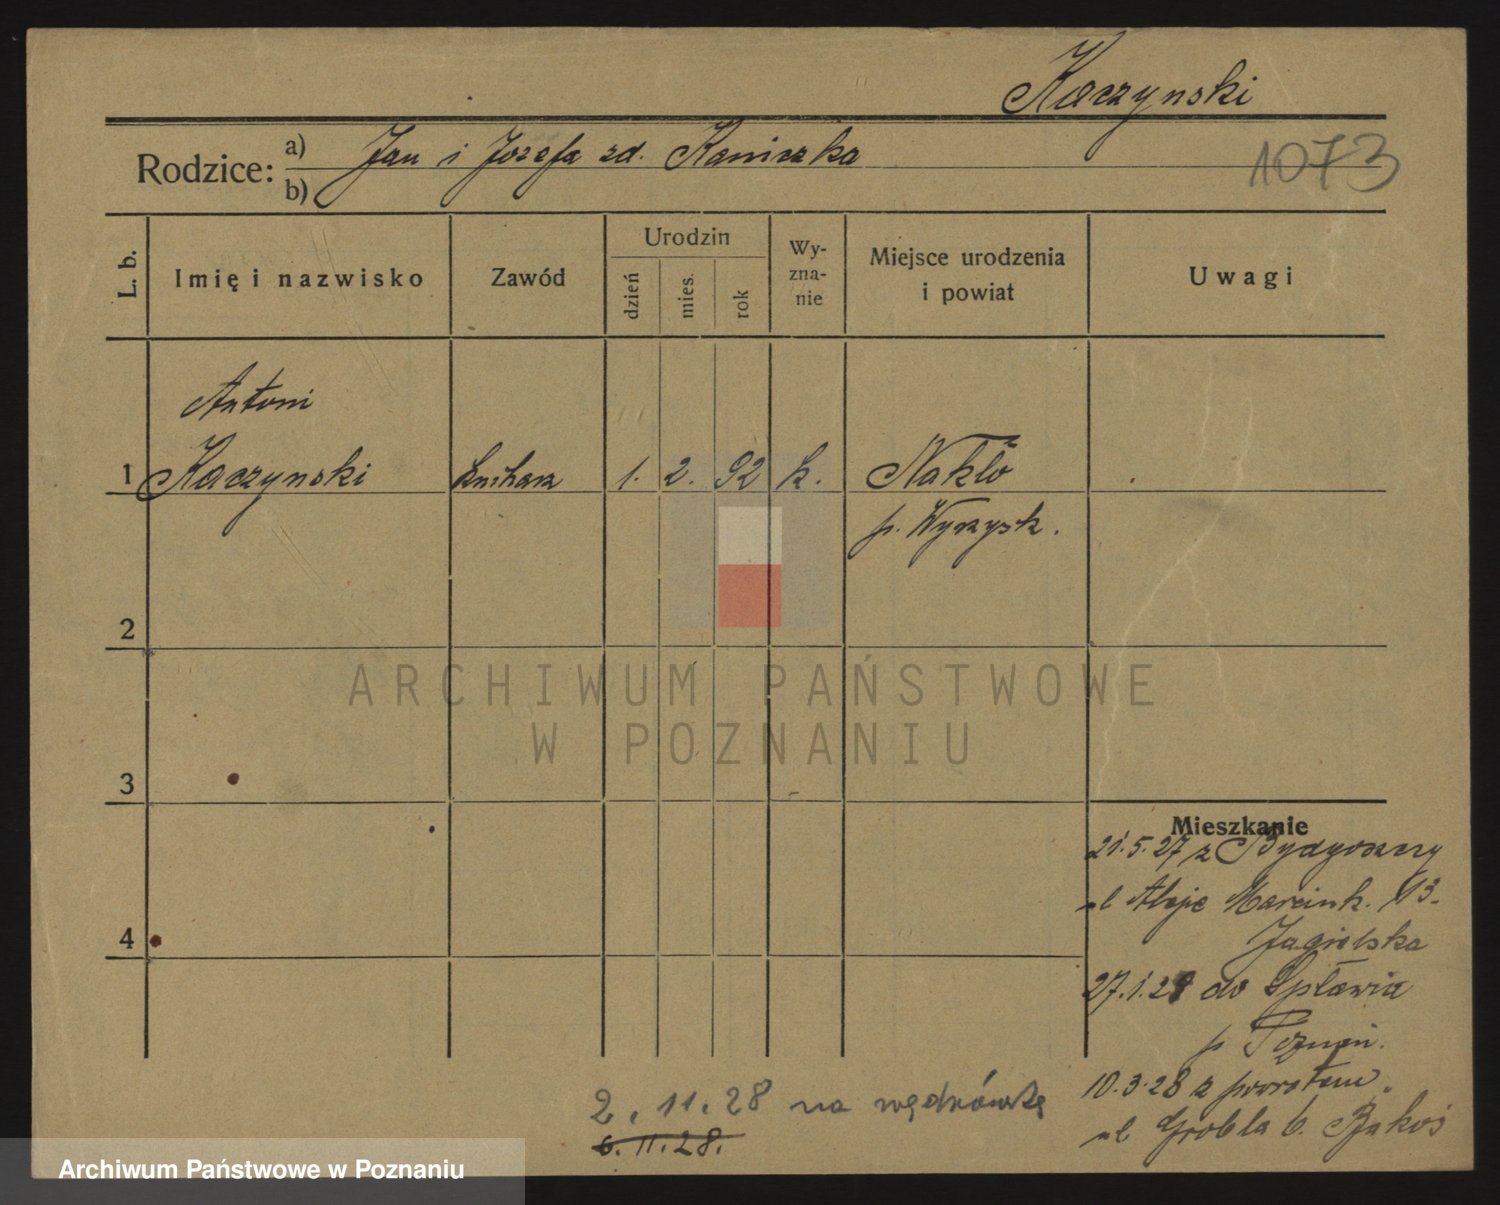 Kaczynski
1073
Rodzice: a) Jan i Jozefa zd. Kaniczka
b)
L. b.
Imię i nazwisko
Zawód
Urodzin
dzień
mies.
rok
Wy-
zna-
nie
Miejsce urodzenia
i powiat
Uwagi
Antoni
1 Kaczynski kucharz 1. 2. 92 k. Nakło
p. Wyrzysk.
2
ARCHIWUM PAŃSTWOWE
W POZNANIU
3
Mieszkanie
21.5.27 z Bydgoszczy
ul Aleje Marcink. 13.
Jagielska
4
27.1.28 do Spławia
p Poznań.
10.3.28 z powrotem.
ul Grobla 6.
2. 11. 28 na wędrówkę
6. 11. 28.
Archiwum Państwowe w Poznaniu